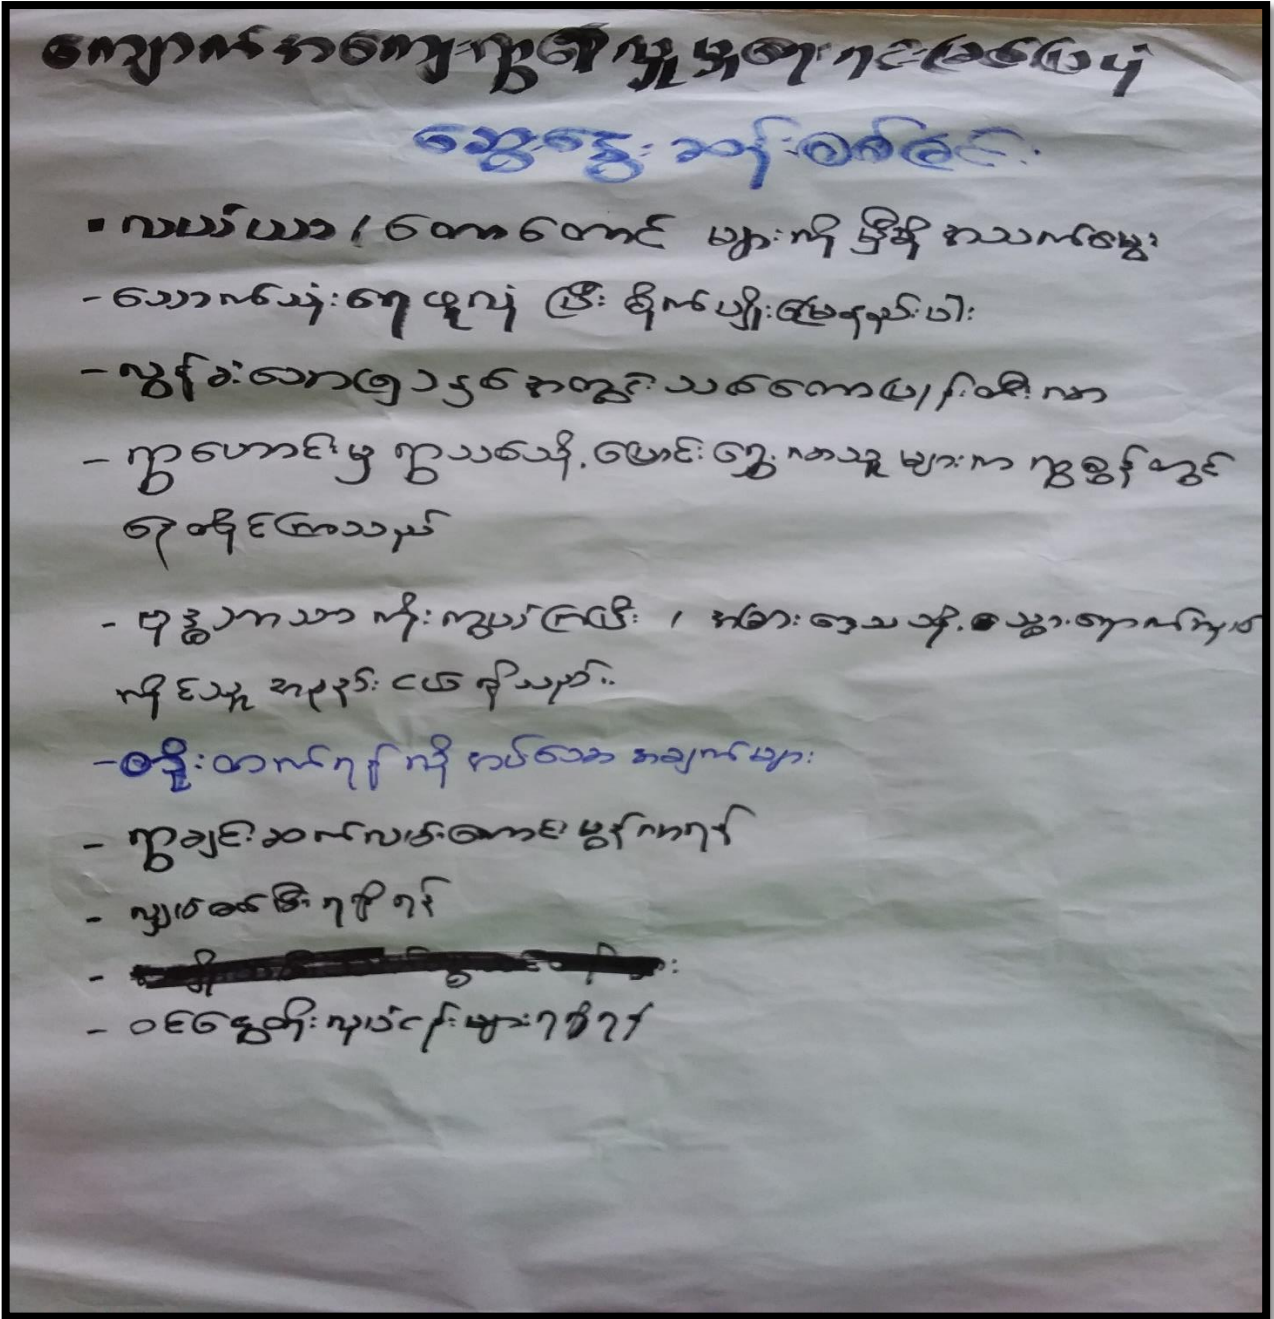 ကျောက်အကျေးရွာ၏လူမှုရေးရင်းမြစ်ပြပုံ
ဆွေးနွေးဆန်းစစ်ခြင်း
▪ လယ်ယာ / တောတောင် များကို မှီခို အသက်မွေး
- သောက်သုံးရေဖူလုံ ပြီး စိုက်ပျိုးမြေနည်းပါး
- လွန်ခဲ့သော ၅ နှစ်အတွင်း သစ်တောပြုန်းတီးလာ
- ရွာဟောင်းမှ ရွာသစ်သို့ ပြောင်းရွှေ့လာသူ များက ရွာစွန်တွင်
နေထိုင်ကြသည်
- ဗုဒ္ဓဘာသာ ကိုးကွယ်ကြပြီး / အခြားဒေသသို့ သွားရောက်လုပ်
ကိုင်သူ အနည်းငယ် ရှိသည်။
- တိုးတက်ရန် လိုအပ်သော အချက်များ
- ရွာချင်းဆက်လမ်းကောင်းမွန်လာရန်
- လျှပ်စစ်မီး ရရှိရန်
-
- ဝင်ငွေတိုးလုပ်ငန်းများရရှိရန်